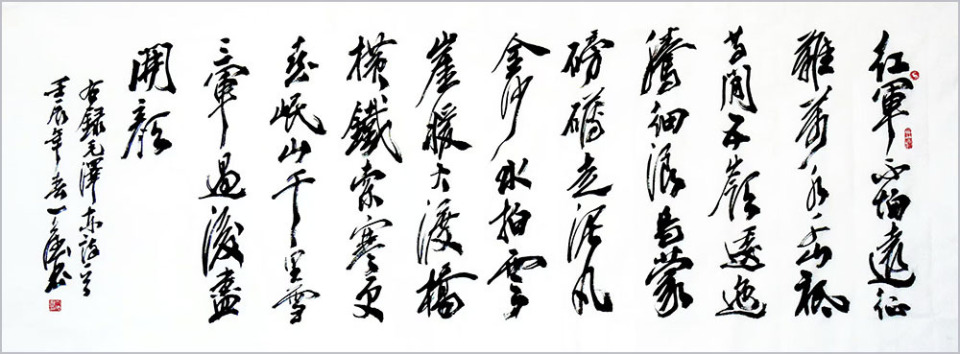 紅軍不怕遠征
難萬水千山祗
等閒五嶺逶迤
騰細浪烏蒙
磅礴走泥丸
金沙水拍雲
崖暖大渡橋
橫鐵索寒更
喜岷山千里雪
三軍過後盡
開顏
右錄毛澤東詩
壬辰年春